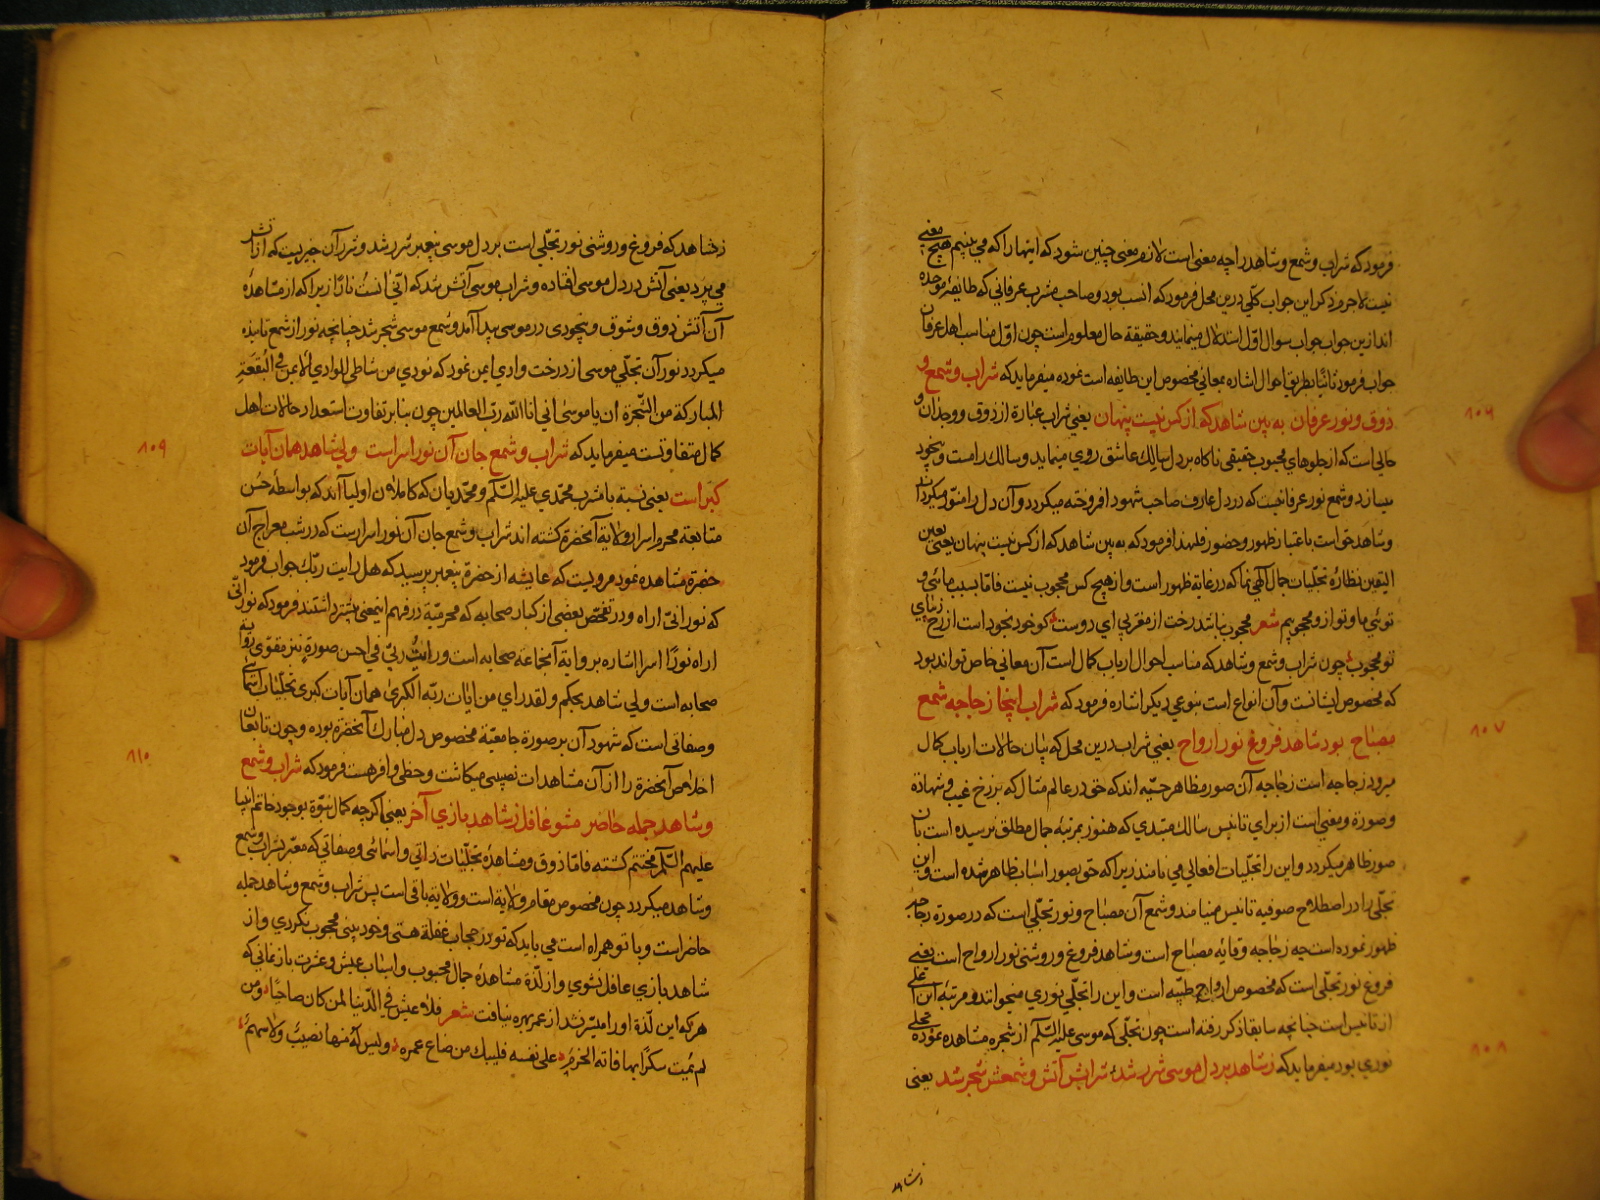 فرمود که شراب و شمع و شاهد را چه معنی است لازم معنی چنین شود که اینها را که می بینیم هیچ معنی
نیست لاجرم ذکر این جواب کلی درین محل فرمود که انسب بود و صاحب مشرب عرفانی که طایفهٔ موحده
اند ازین جواب جواب سوال اوّل استدلال مینماید و حقیقة حال معلوم است چون اوّل مناسب اهل عرفان
جواب فرمود ثانیًا بطریق احوال اشاره بمعانی مخصوص این طایفه است نموده میفرماید که شراب و شمع و
ذوق و نور عرفان به بین شاهد که از کس نیست پنهان یعنی شراب عبارة از ذوق و وجدان و
حالی است که از جلوهای محبوب حقیقی ناکاه بر دل سالک عاشق روی مینماید و سالک را مست و بیخود
میسازد و شمع نور عرفانیست که در دل عارف صاحب شهود افروخته میکردد و آن دل را منوّر میکرداند
و شاهد حق است باعتبار ظهور و حضور فلهذا فرمود که به بین شاهد که از کس نیست پنهان یعنی بعین
الیقین نظاره تجلّیات جمال الهی نما که در غایة ظهور است و از هیچ کس محجوب نیست فاما بسبب مائی و
توئی ما و تو از و محجوبیم شعر محجوب نباشد رخت از مغربی ای دوست کو خود بخود است از رخ زیبای
تو محجوب چون شراب و شمع و شاهد که مناسب احوال ارباب کمال است آن معانی خاص تواند بود
که مخصوص ایشانست و آن انواع است بنوعی دیکر اشاره فرمود که شراب اینجا زجاجه شمع
مصباح بود شاهد فروغ نور ارواح یعنی شراب درین محل که بیان حالات ارباب کمال
میرود زجاجه است زجاجه آن صور مظاهر حسّیه اند که حق در عالم مثال که برزخ غیب و شهادة
و صورة و معنی است از برای تانیس سالک مبتدی که هنوز بمرتبهٔ جمال مطلق نرسیده است بان
صور ظاهر میکردد و این را تجلّیات افعالی می نامند زیرا که حق بصور اسباب ظاهر شده است و این
تجلّی را در اصطلاح صوفیه تانیس مینامند و شمع آن مصباح و نور تجلّی است که در صورة زجاجه
ظهور نموده است چه زجاجه وقایهٔ مصباح است و شاهد فروغ و روشنی نور ارواح است یعنی
فروغ نور تجلّی است که مخصوص ارواح طیّبه است و این را تجلّی نوری میخوانند و مرتبهٔ این اعلی
از تانیس است چنانچه سابقا ذکر رفته است چون تجلّی که موسی علیه السّلم از شجره مشاهده نموده تجلی
نوری بود میفرماید که ز شاهد بر دل موسی شرر شد شرابش آتش و شمعش شجر شد یعنی
١٠٦
١٠٧
١٠٨
ز شاهد
ز شاهد که فروغ و روشنی نور تجلّی است بر دل موسی پیغمبر شرر شد و شرر آن چیزیست که از آتش
می پرد یعنی آتش در دل موسی افتاده و شراب موسی آتش شد که انّی انست نارًا زیرا که از مشاهدهٔ
آن آتش ذوق و شوق و بیخودی در موسی پیدا آمد و شمع موسی شجر شد چنانچه نور از شمع تابنده
میکردد نور آن تجلّی موسی از درخت وادی ایمن نمود که نودی من شاطی الوادی الایمن فی البقعة
المبارکة من الشّجرة ان یا موسی انی انا اللّه رب العالمین چون بنابر تفاوت استعداد حالات اهل
کمال متفاوتست میفرماید که شراب و شمع جان آن نور اسراست ولی شاهد همان آیات
کبراست یعنی نسبة با مشرب محمّدی علیه السّلم و محمّدیان که کاملان اولیا اند که بواسطهٔ حسن
متابعة محرم اسرار ولایة آنحضرة کشته اند شراب و شمع جان آن نور اسراست که در شب معراج آن
حضرة مشاهده نمود مرویست که عایشه از حضرة پیغمبر پرسید که هل رایت ربّک جواب فرمود
که نور انّی اراه و در تفحّص بعضی از کبار صحابه که محرمیّة در فهم اینمعنی بیشتر داشتند فرمود که نورانّی
اراه نورًا اسرا اشاره بروایة آنجماعة صحابه است و رایتُ ربّی فی احسن صورةٍ نیز مقوی روایة
صحابه است ولی شاهد بحکم و لقد رای من ایٰات ربّه الکبری همان آیات کبری تجلّیات اسمائی
و صفاتی است که شهود آن بر صورة جامعیّة مخصوص دل مبارک آنحضرة بوده و چون تابعان
اخلاص آنحضرة را از آن مشاهدات نصیبی میکاشت و حظی وافر هست فرمود که شراب و شمع
و شاهد جمله حاضر مشو غافل ز شاهد بازی آخر یعنی اکرچه کمال نبوّة بوجود خاتم انبیا
علیهم السّلم مختتم کشته فامّا ذوق و مشاهدهٔ تجلّیات ذاتی و اسمائی و صفاتی که معبّر بشراب و شمع
و شاهد میکردد چون مخصوص مقام ولایة است و ولایة باقی است پس شراب و شمع و شاهد جمله
حاضر است و با تو همراه است می باید که تو در حجاب غفلة هستی و خود بینی محجوب نکردی و از
شاهد بازی غافل نشوی و از لذّة مشاهدهٔ جمال محبوب و اسباب عیش و عشرت باز نمانی که
هر که این لذّة او را میسّر نشد از عمر بهره نیافت شعر فلا عیش فی الدّنیا لمن کان صاحیًا و من
لم یمت سکرًا بها فاته الحزمُ علی نفسه فلیبک من ضاع عمره و لیس له منها نصیبٌ و لا سهمٌ
١٠٩
١١٠